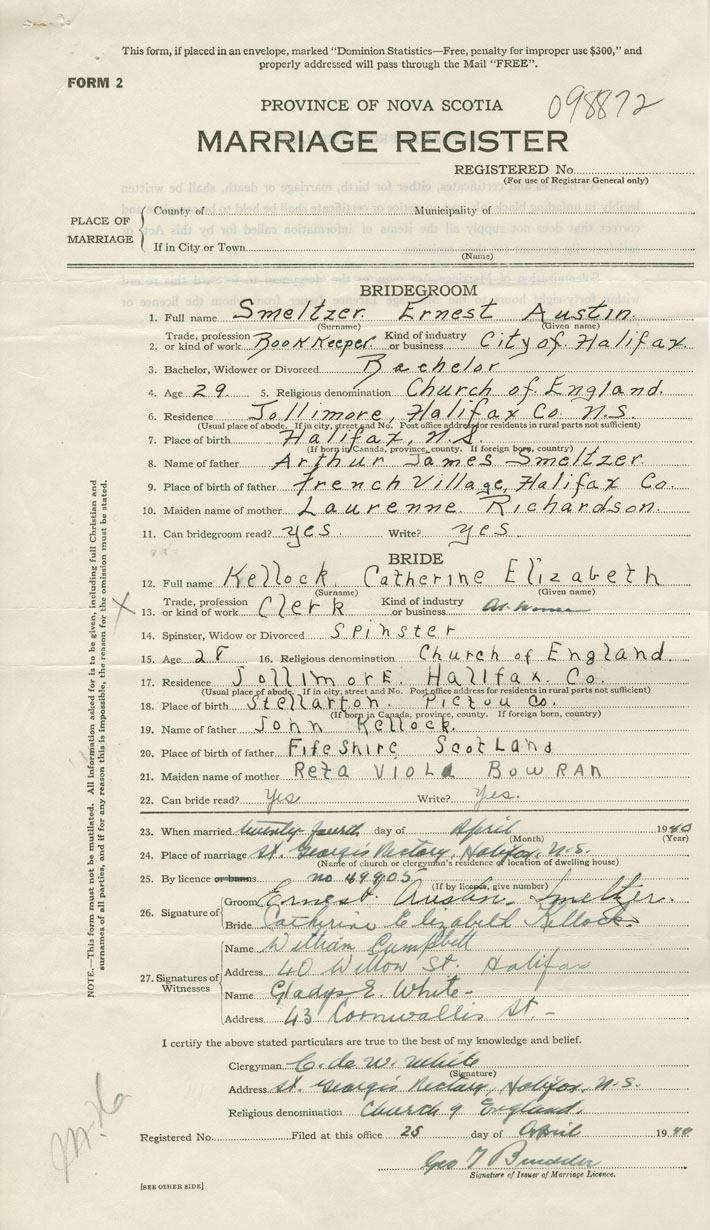 This form, if placed in an envelope, marked "Dominion Statistics—Free, penalty for improper use $300," and
properly addressed will pass through the Mail "FREE".
FORM 2
PROVINCE OF NOVA SCOTIA
098872
MARRIAGE REGISTER
REGISTERED No.
(For use of Registrar General only)
PLACE OF MARRIAGE
County of Municipality of
If in City or Town
(Name)
BRIDEGROOM
1. Full name Smeltzer Ernest Austin.
(Surname) (Given name)
2. Trade, profession or kind of work Book Keeper. Kind of industry or business City of Halifax
3. Bachelor, Widower or Divorced Bachelor
4. Age 29. 5. Religious denomination Church of England.
6. Residence Jollimore, Halifax Co. N.S.
(Usual place of abode. If in city, street and No. Post office address for residents in rural parts not sufficient)
7. Place of birth Halifax, N.S.
(If born in Canada, province, county. If foreign born, country)
8. Name of father Arthur James Smeltzer
9. Place of birth of father French Village, Halifax Co.
10. Maiden name of mother Laurenne Richardson.
11. Can bridegroom read? yes Write? yes
BRIDE
12. Full name Kellock Catherine Elizabeth
(Surname) (Given name)
X
13. Trade, profession or kind of work Clerk Kind of industry or business
14. Spinster, Widow or Divorced Spinster
15. Age 28 16. Religious denomination Church of England.
17. Residence Jollimore. Halifax. Co.
(Usual place of abode. If in city, street and No. Post office address for residents in rural parts not sufficient)
18. Place of birth Stellarton. Pictou Co.
(If born in Canada, province, county. If foreign born, country)
19. Name of father John Kellock.
20. Place of birth of father Fifeshire Scotland
21. Maiden name of mother Reta Viola Bowran
22. Can bride read? Yes Write? Yes.
23. When married twenty fourth day of April 1940
(Month) (Year)
24. Place of marriage St. George's Rectory, Halifax, N.S.
(Name of church or clergyman's residence or location of dwelling house)
25. By licence or banns no 49905
(If by licence, give number)
26. Signature of
Groom Ernest Austin Smeltzer.
Bride Catherine Elizabeth Kellock
27. Signatures of Witnesses
Name William Campbell
Address 40 Willow St. Halifax
Name Gladys E. White
Address 43 Cornwallis St.
I certify the above stated particulars are true to the best of my knowledge and belief.
Clergyman C. de W. White
(Signature)
Address St. George's Rectory, Halifax, N.S.
Religious denomination Church of England.
Registered No. Filed at this office 25 day of April 1940
Geo T
Signature of Issuer of Marriage Licence.
[SEE OTHER SIDE]
NOTE.—This form must not be mutilated. All information asked for is to be given, including full Christian and
surnames of all parties, and if for any reason this is impossible, the reason for the omission must be stated.